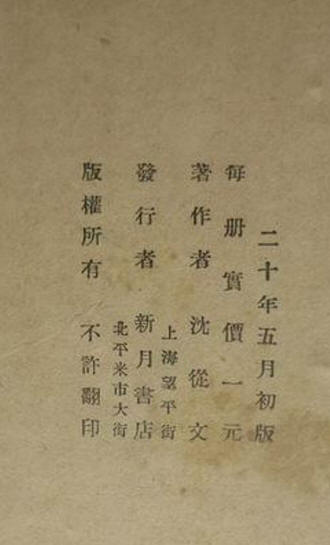 二十年五月初版
每册實價一元
著作者 沈從文
上海望平街
發行者 新月書店
北平米市大街
版權所有 不許翻印